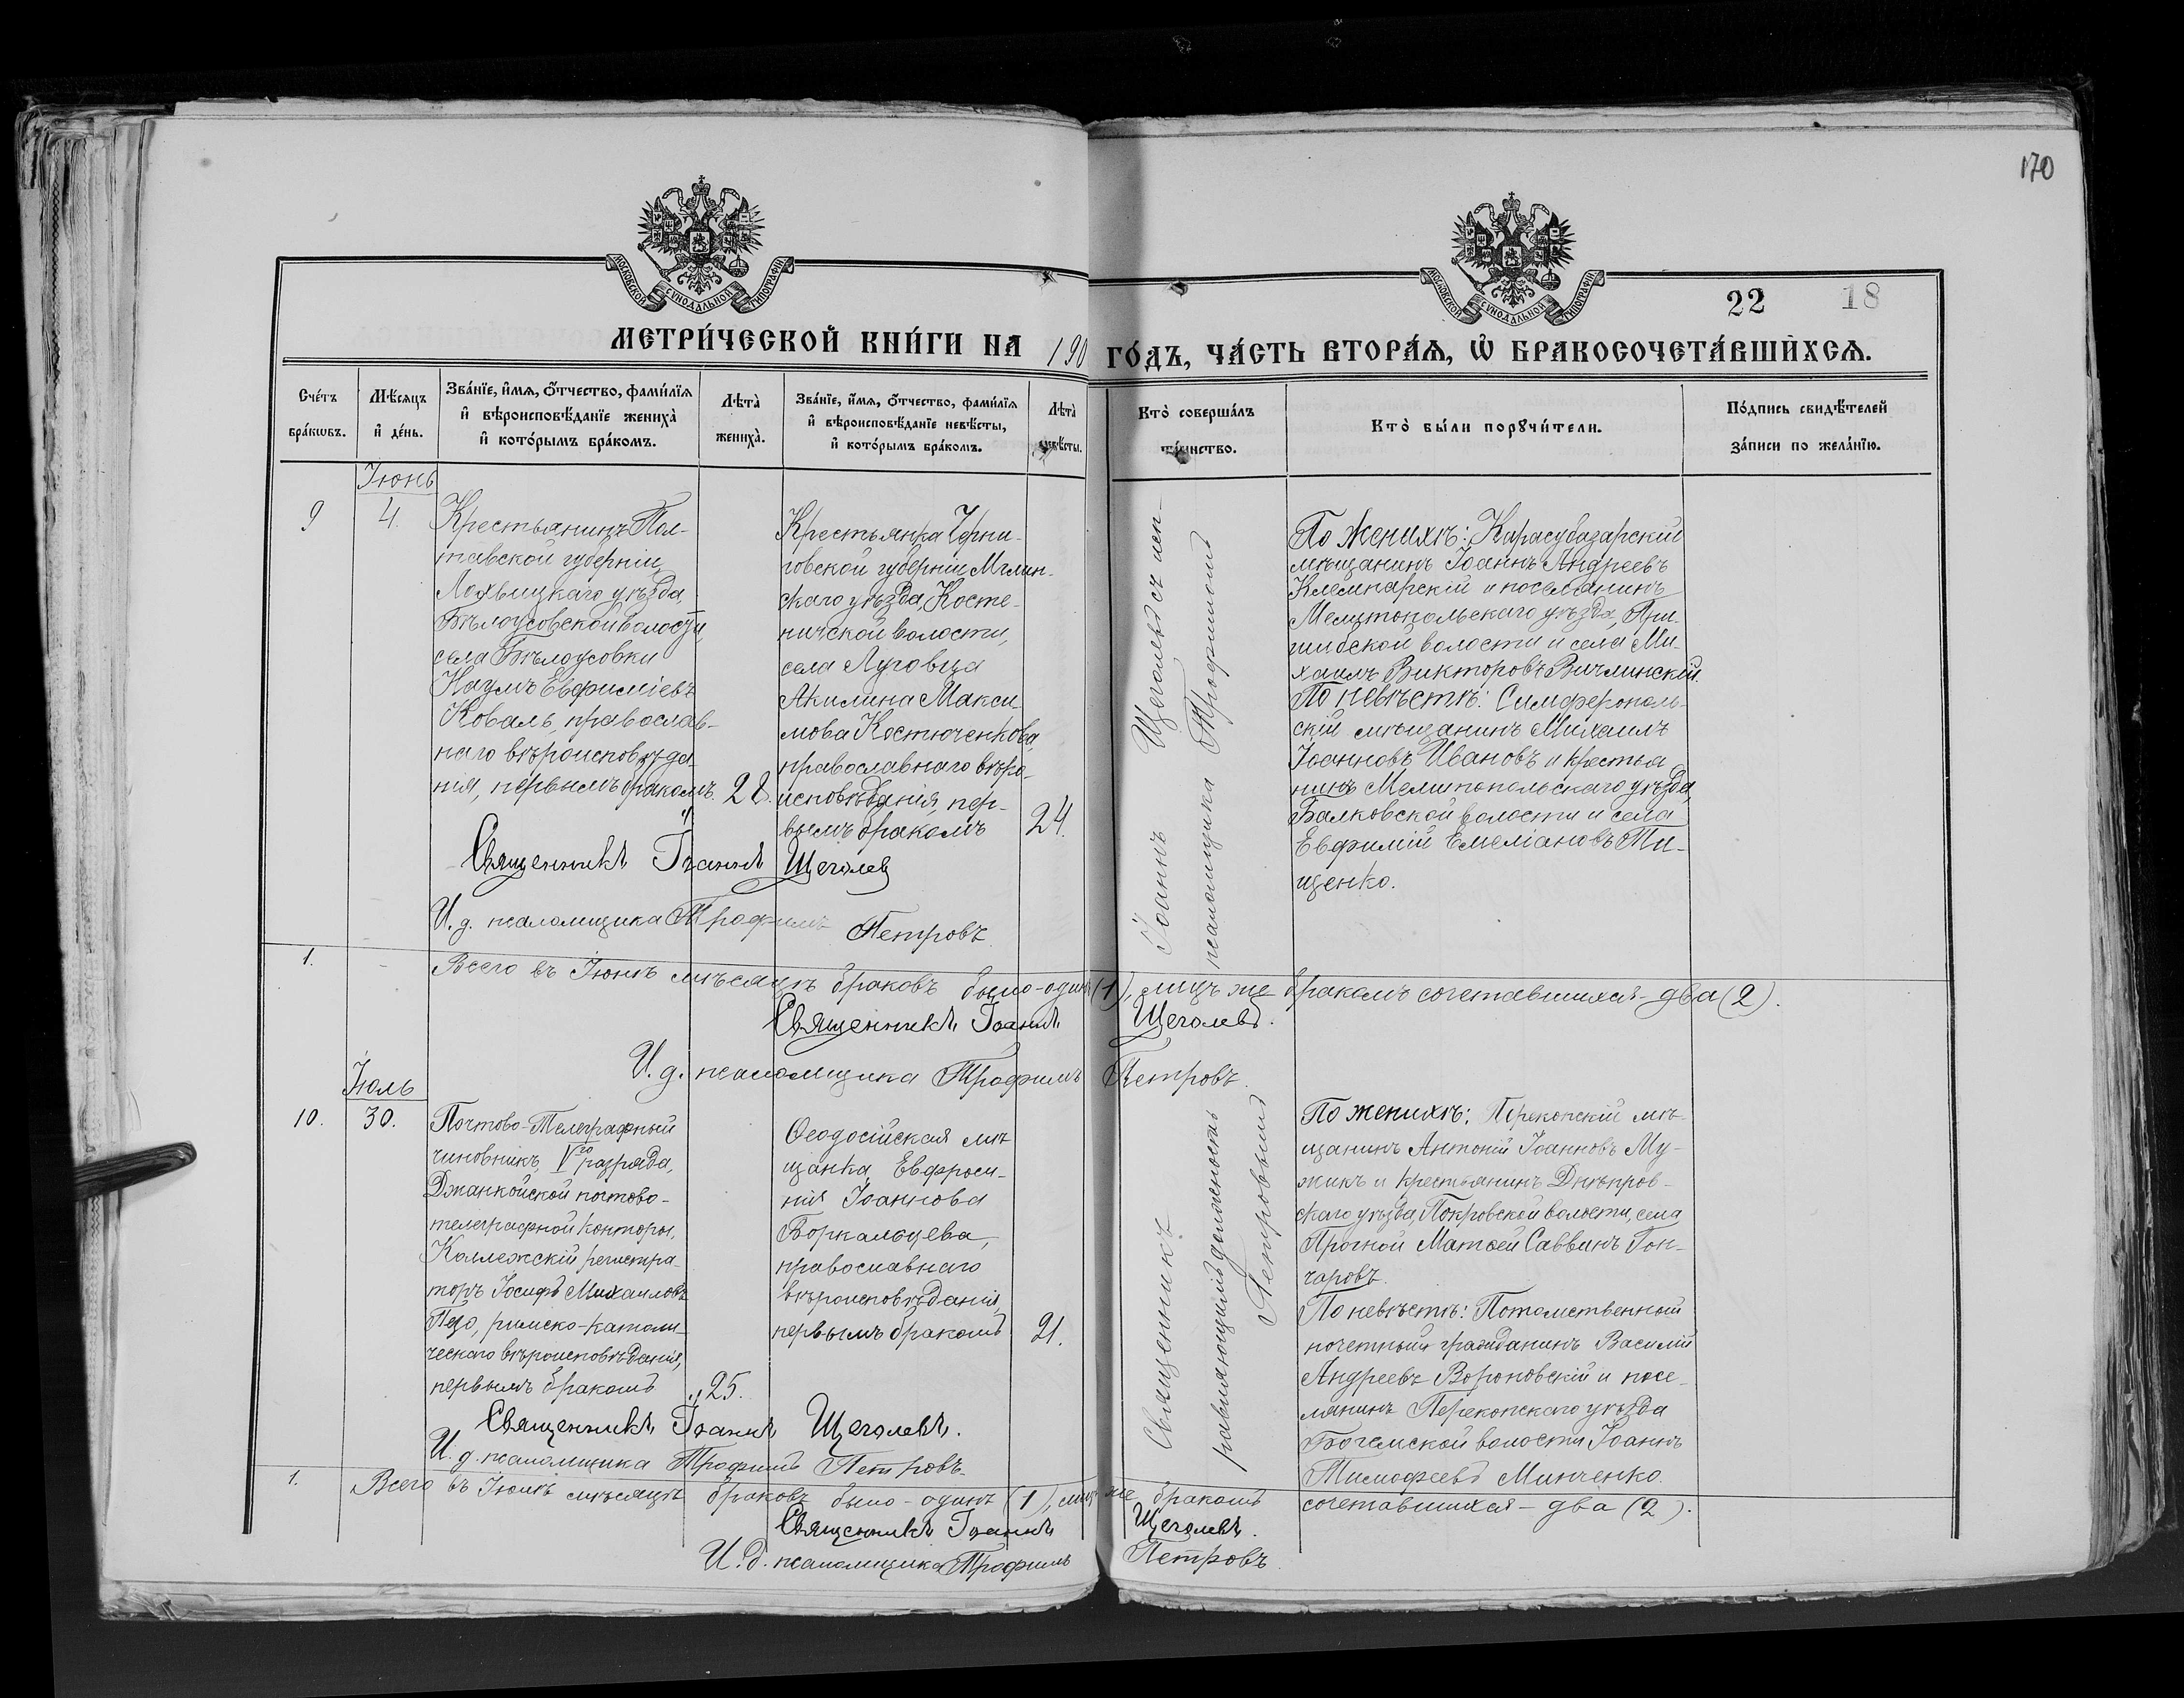 170
МОСКОВСКОЙ СѴНОДАЛЬНОЙ ТИПОГРАФІИ
МОСКОВСКОЙ СѴНОДАЛЬНОЙ ТИПОГРАФІИ
22 18
МЕТРИ́ЧЕСКОЙ КНИ́ГИ НА 190 ГО́ДЪ, ЧА́СТЬ ВТОРА́Я, Ѡ БРАКОСОЧЕТА́ВШИХСЯ.
Сче́тъ
бра́кωвъ.
Мѣ́сяцъ
и҆ де́нь.
Зва́нїе, и҆́мя, о҆́тчество, фами́лїя
и҆ вѣроисповѣ́данїе жениха̀
и҆ кото́рымъ бра́комъ.
Лѣта̀
жениха̀.
Зва́нїе, и҆́мя, о҆́тчество, фами́лїя
и҆ вѣроисповѣ́данїе невѣ́сты,
и҆ кото́рымъ бра́комъ.
Лѣта̀
невѣ́сты.
Кто̀ соверша́лъ
та́инство.
Кто̀ бы́ли порꙋчи́тели.
По́дпись свидѣ́телей
за́писи по жела́нїю.
Іюнь
9
4.
Крестьянинъ Пол-
тавской губерніи,
Лохвицкаго уѣзда,
Бѣлоусовской волости,
села Бѣлоусовки
Наумъ Евфиміевъ
Коваль, православ-
наго вѣроисповѣда-
нія, первымъ бракомъ.
28.
Крестьянка Черни-
говской губерніи, Мглин-
скаго уѣзда, Косте-
ничской волости,
села Луговца
Акилина Макси
мова Костюченкова,
православнаго вѣро-
исповѣданія, пер-
вымъ бракомъ
24.
Іоаннъ Щеголевъ съ исп-
псаломщика Трофимомъ
По Женихѣ: Карасубазарскій
мѣщанинъ Іоаннъ Андреевъ
Клемпарскій и поселянинъ
Мелитопольскаго уѣзда, При-
шибской волости и села Ми-
хаилъ Викторовъ Вичлинскій.
По Невѣстѣ: Симферополь-
скій мѣщанинъ Михаилъ
Іоанновъ Ивановъ и крестья
нинъ Мелитопольскаго уѣзда,
Балковской волости и села
Евфимій Емеліановъ Ти-
щенко.
Священникъ Іоаннъ Щеголев
И. д. псаломщика Трофимъ Петровъ
1.
Всего въ Іюнѣ мѣсяцѣ браковъ было-одинъ (1), лицъ же бракомъ сочетавшихся-два (2).
Священникъ Іоаннъ Щеголевъ.
И. д. псаломщика Трофимъ Петровъ.
Іюль
10.
30.
Почтово-Телеграфный
чиновникъ, V го разряда,
Джанкойской почтово-
телеграфной конторы,
Коллежскій регистра-
торъ Іосифъ Михаиловъ
римско-католи-
ческаго вѣроисповѣданія,
первымъ бракомъ
25.
Ѳеодосійская мѣ
щанка, Евфроси-
нія Іоаннова
Боркальцева,
православнаго
вѣроисповѣданія,
первымъ бракомъ
21.
Священникъ
равляющимъ должность
Петровымъ
По женихѣ: Перекопскій мѣ-
щанинъ Антоній Іоанновъ Му-
жикъ и крестьянинъ Днѣпров-
скаго уѣзда, Покровской волости, села
Прогной Матѳей Саввинъ Гон-
чаровъ.
По невѣстѣ: Потомственный
почетный гражданинъ Василій
Андреевъ Вороновскій и посе-
лянинъ Перекопскаго уѣзда
Богемской волости Іоаннъ
Тимофеевъ Минченко.
Священникъ Іоаннъ Щеголевъ.
И. д. псаломщика Трофимъ Петровъ.
1.
Всего въ Іюлѣ мѣсяцѣ браковъ было-одинъ (1), лицъ же бракомъ сочетавшихся-два (2).
Священникъ Іоаннъ Щеголевъ.
И. д. псаломщика Трофимъ Петровъ.